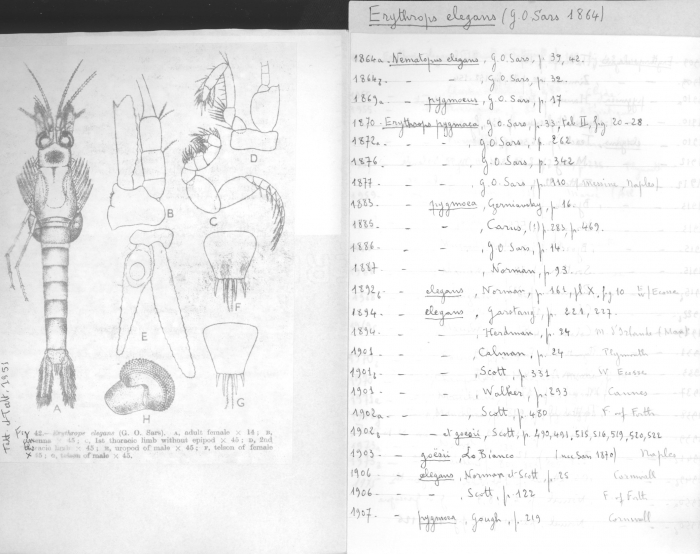 B
D
C
A
E
F
G
H
Tatt. & Tatt. 1951
Fig 42.—Erythrops elegans (G. O. Sars). A, adult female × 14; B,
× 45; C, 1st thoracic limb without epipod × 45; D, 2nd
thoracic limb × 45; E, uropod of male × 45; F, telson of female
× 45; G, telson of male × 45.
Erythrops elegans (G.O Sars 1864)
1864a. Nematopus elegans, G.O.Sars, p. 39, 42.
1864 - - , G.O.Sars, p. 32.
1869a - pygmoeus, G.O.Sars, p. 17
1870. Erythrops pygmaea, G.O.Sars, p. 33, tab II, fig 20-28.
1872a. - - , G.O.Sars, p. 262
1876 - - , G.O.Sars, p. 342
1877 - - , G.O.Sars, p. 110 (Messine, Naples).
1883 - pygmoea, Czerniavsky, p. 16.
1885. - - , Carus, (1) p. 283, p. 469.
1886. - - , G.O.Sars, p. 14.
1887 - - , Norman, p. 93.
1892b - elegans, Norman, p. 161, pl. X, fig 10 W Ecosse
1894 - elegans, Garstang, p. 221, 227.
1894. - - , Herdman, p. 24 M d'Irlande (Man)
1901 - - , Calman, p. 24 Plymouth
1901 - - , Scott, p. 331 W Ecosse
1901 - - , Walker, p. 293 Cannes
1902a - - , Scott, p. 480 F. of Forth
1902 - - et goësii, Scott, p. 490, 491, 515, 516, 519, 520, 522
1903 - goësii, Lo Bianco (nec Sars 1870) Naples
1906 - elegans, Norman & Scott, p. 25 Cornwall
1906 - - , Scott, p. 122 F of Forth
1907 - pygmoea, Gough, p. 219 Cornwall